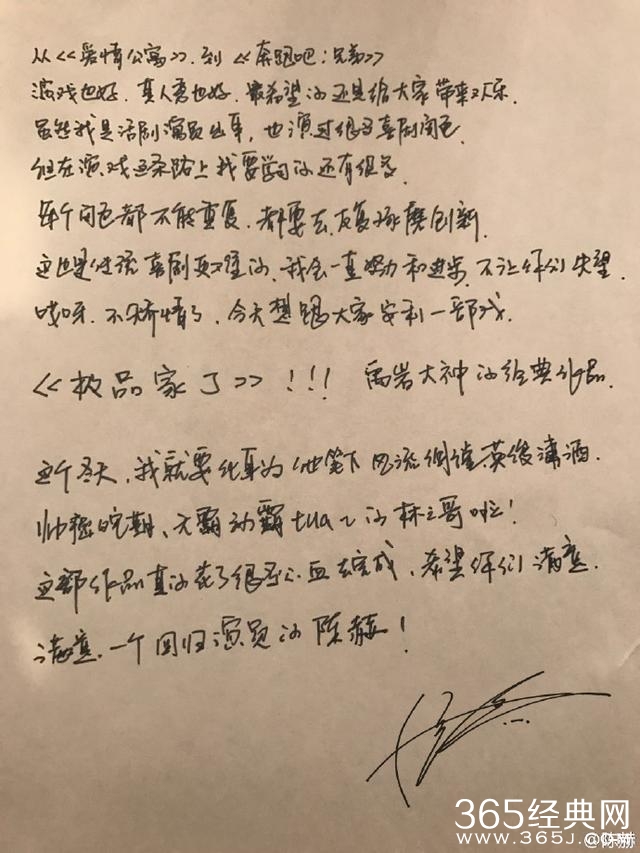 从<<爱情公寓>>.到<<奔跑吧:兄弟>>
游戏也好.真人秀也好.最希望的还是给大家带来欢乐.
虽然我是话剧演员出身,也演过很多喜剧角色.
但在演戏这条路上我要学习的还有很多.
每个角色都不能重复.都要去反复琢磨创新.
这也是传统喜剧更难的.我会一直努力和进步.不让你们失望.
哎呀.不矫情了,今天想跟大家安利一部戏.
<<极品家丁>>!!! 禹岩大神的经典作品.
这个冬天,我就要化身为他笔下风流倜傥.英俊潇洒.
帅裂苍穹.无霸动霸tua~的林三哥啦!
这部作品真的花了很多心血去完成,希望你们满意.
满意.一个回归演员的陈赫!
365经典网
www.365j.
@陈赫